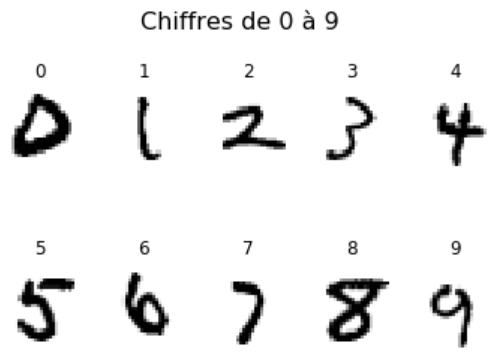 Chiffres de 0 à 9
0 1 2 3 4
0 1 2 3 4
5 6 7 8 9
5 6 7 8 9